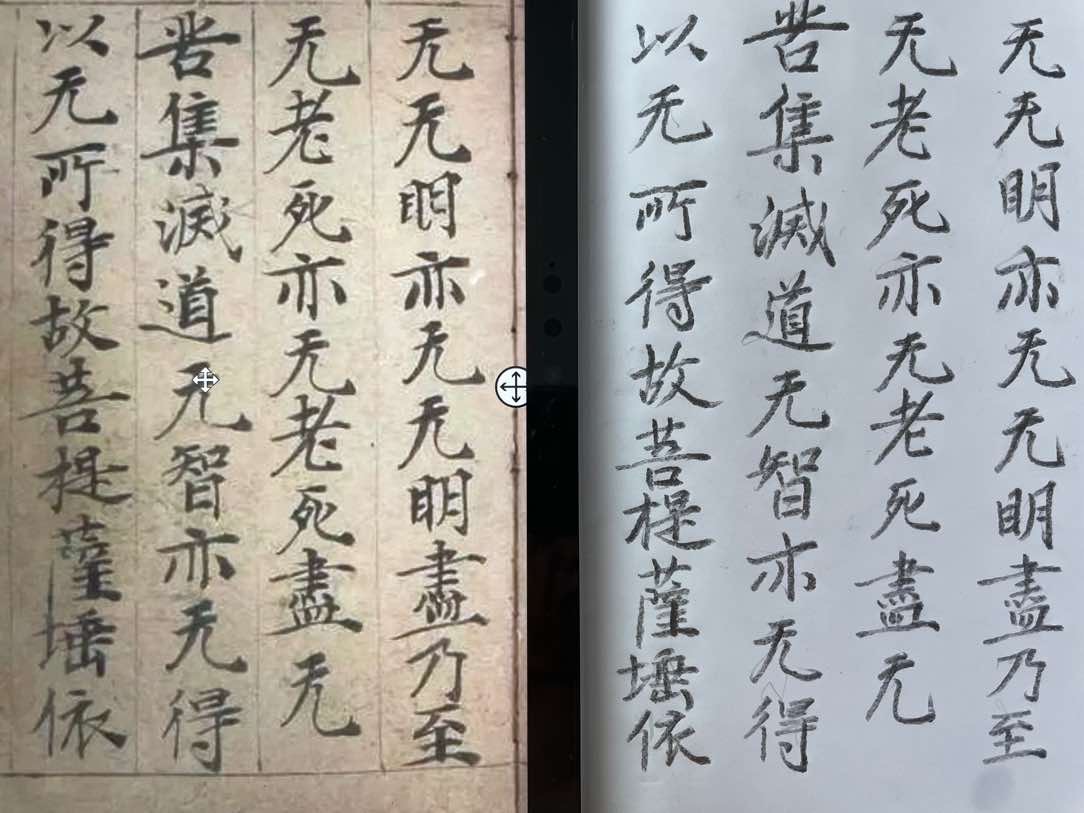 无无明亦无无明盡乃至
无老死亦无老死盡无
苦集滅道无智亦无得
以无所得故菩提薩埵依
无无明亦无无明盡乃至
无老死亦无老死盡无
苦集滅道无智亦无得
以无所得故菩提薩埵依